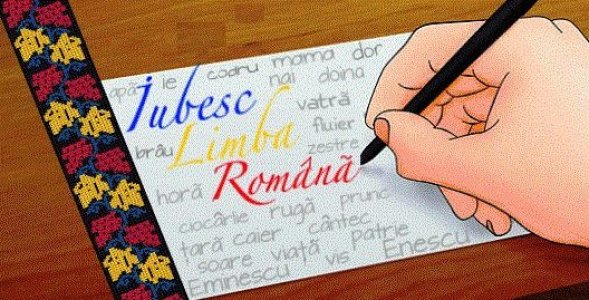 apă ie codru mama dor
nai doina
Iubesc vatră
brâu Limba fluier
zestre
Română
horă
ciocârlie rugă prunc
țară caier cântec
soare viață patrie
Eminescu vis Enescu